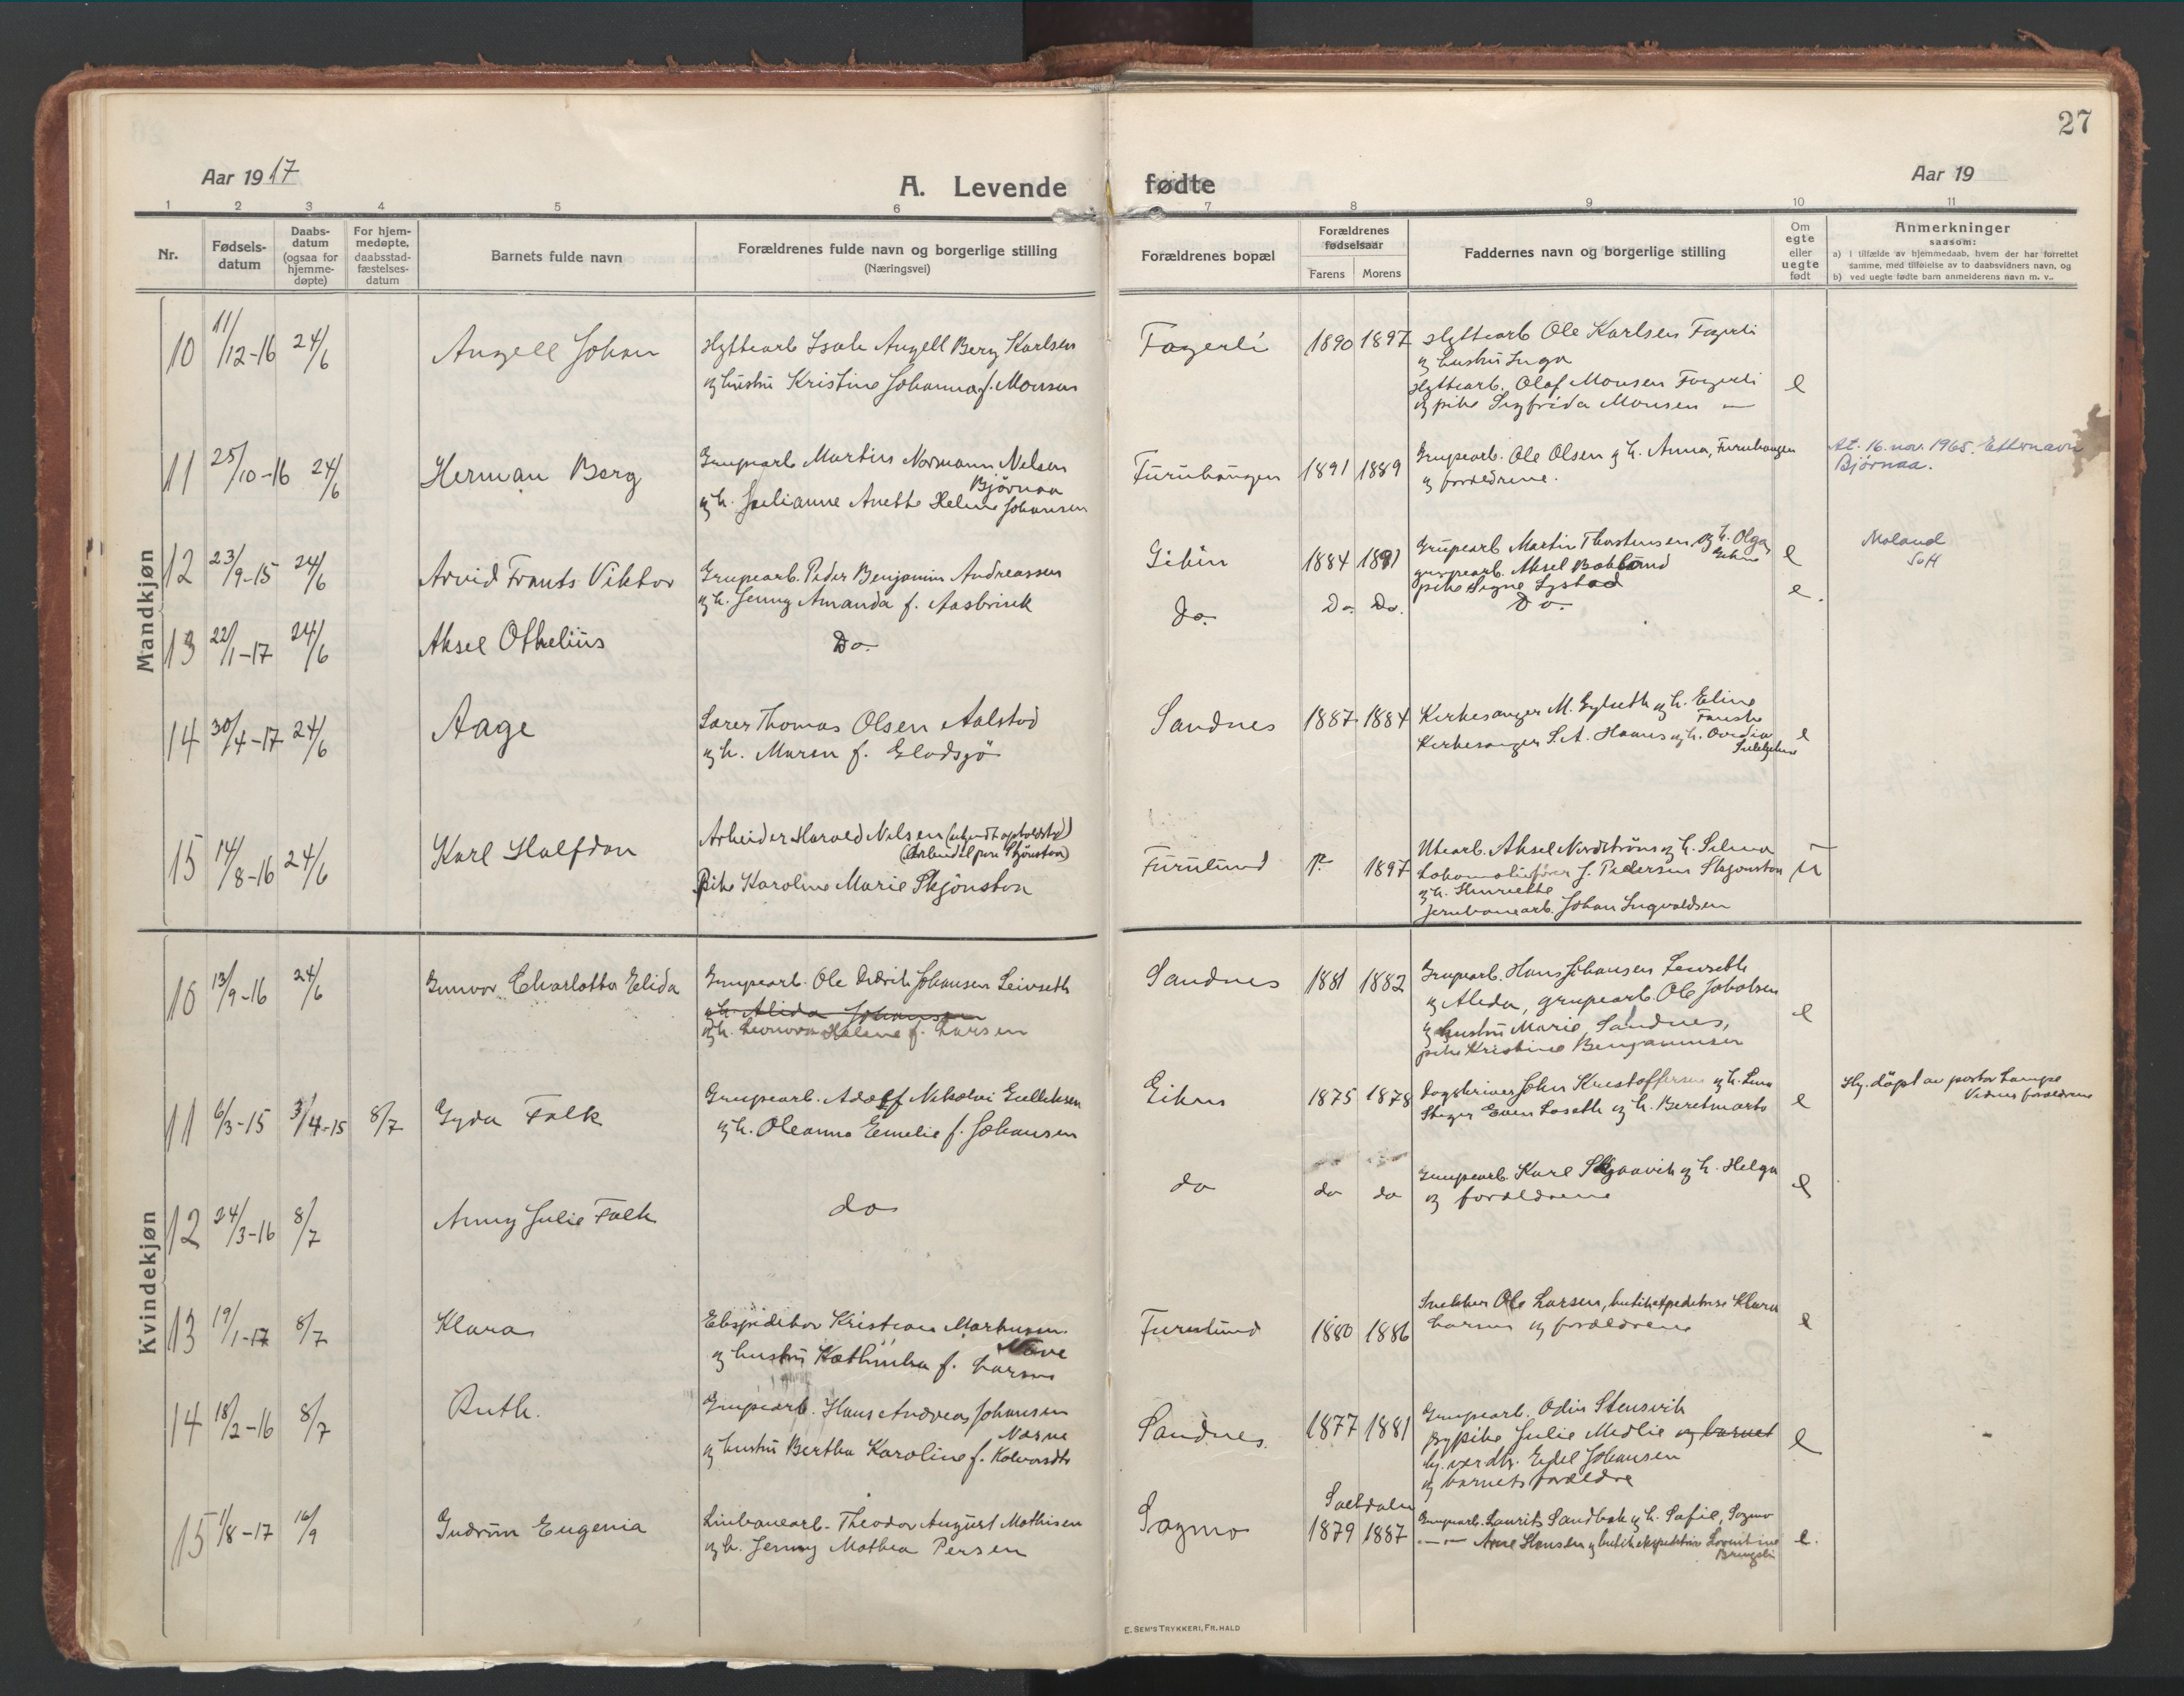 27
Aar 1917
A. Levende fødte
Aar 19
1 2 3 4 5 6 7 8 9 10 11
Nr.
Fødsels-
datum
Daabs-
datum
(ogsaa for
hjemme-
døpte)
For hjem-
medøpte,
daabsstad-
fæstelses-
datum
Barnets fulde navn
Forældrenes fulde navn og borgerlige stilling
(Næringsvei)
Forældrenes bopæl
Forældrenes
fødselsaar
Farens Morens
Faddernes navn og borgerlige stilling
Om
egte
eller
uegte
født
Anmerkninger
saasom:
a) i tilfælde av hjemmedaab, hvem der har forrettet
samme, med tilføielse av to daabsvidners navn, og
b) ved uegte fødte barn anmelderens navn m. v.
Mandkjøn
10 11/12-16 24/6 Angell Johan
Hyttearb Isak Angell Berg Karlsen
og hustru Kristine Johanna f. Monsen
Fagerli 1890 1897
Hyttearb Ole Karlsen Fagerli
og hustru Inga
Hyttearb. Olaf Monsen Fagerli
og pike Sigfrida Monsen —
e
11 25/10-16 24/6 Herman Berg
Grupearb Martin Normann Nelsen
Bjørnaa
og h. Julianne Anette Helene Johansen
Furuhaugen 1891 1889
Grupearb. Ole Olsen og h. Anna, Furuhaugen
og forældrene.
At. 16. nov. 1965. Etternavn
Bjørnaa.
12 23/9-15 24/6 Arvid Frants Viktor
Grupearb. Peder Benjamin Andreassen
og h. Jenny Amanda f. Aasbrink
Giken 1884 1891
Grupearb Martin Thorstensen og h. Olga,
Giken
grupearb. Aksel Boklund
pike Signe Lystad
e
Moland
SoH
13 22/1-17 24/6 Aksel Othelius
Do.
Do. Do. Do.
Do.
e.
14 30/4-17 24/6 Aage
Lærer Thomas Olsen Aalstad
og h. Maren f. Gladsjø
Sandnes 1887 1884
Kirkesanger M. Gylseth og h. Eline
Fauske
Kirkesanger S. A. Hanes og h. Ovedia
Sulitjelma
e
15 14/8-16 24/6 Karl Halfdan
Arbeider Harald Nilsen (ukjendt opholdsted)
Pike Karoline Marie Skjønston
Furulund ? 1897
Utearb. Aksel Nordstrøm og h. Selma
Lokomotivfører J. Pedersen Skjønston
og h. Henriette
Jernbanearb. Johan Ingvaldsen
u
Kvindekjøn
10 13/9-16 24/6 Gunvor Charlotte Elida
Grupearb. Ole Didrik Johansen Leivseth
og h. Alida Johansen
og h. Leonora Helene f. Larsen
Sandnes 1881 1882
Grupearb. Hans Johansen Leivseth
og Aleda, grupearb. Ole Jakobsen
og hustru Marie, Sandnes,
pike Kristine Benjaminsen
e
11 6/3-15 3/4-15 8/7 Gyda Falk
Grupearb. Adolf Nikolai Gulliksen
og h. Oleanna Emelie f. Johansen
Giken 1875 1878
Dagskriver John Kristoffersen og h. Lina
Stiger Even Loseth og h. Beretmarte
e
Hj. døpt av pastor Lampe
Vidner forældrene
12 24/3-16 8/7 Anny Julie Falk
do
do do do
Grupearb. Karl Skjaavik og h. Helga
og forældrene
e
13 19/1-17 8/7 Klara
Ekspeditør Kristian Markussen
og hustru Kathinka f. Larsen
Furulund 1880 1886
Snekker Ole Larsen, butikekspeditrise Klara
Larsen og forældrene
e
14 18/2-16 8/7 Ruth.
Grupearb. Hans Andreas Johansen
og hustru Bertha Karoline f.
Sandnes. 1877 1881
Grupearb. Odin Stensvik
pike Julie Medlie og barnet
Edel Johansen
og barnets forældre
e
15 1/8-17 16/9 Gudrun Eugenia
Linbanearb. Theodor August Mathisen
og h. Jenny Mathea Persen
Sagmo
Saltdalen
1879 1887
Grupearb. Laurits Sandbak og h. Sofie, Sagmo
— — Arne Hansen og butikekspeditrise Lovintine
Bringsli
e.
E. SEM'S TRYKKERI, FR.HALD